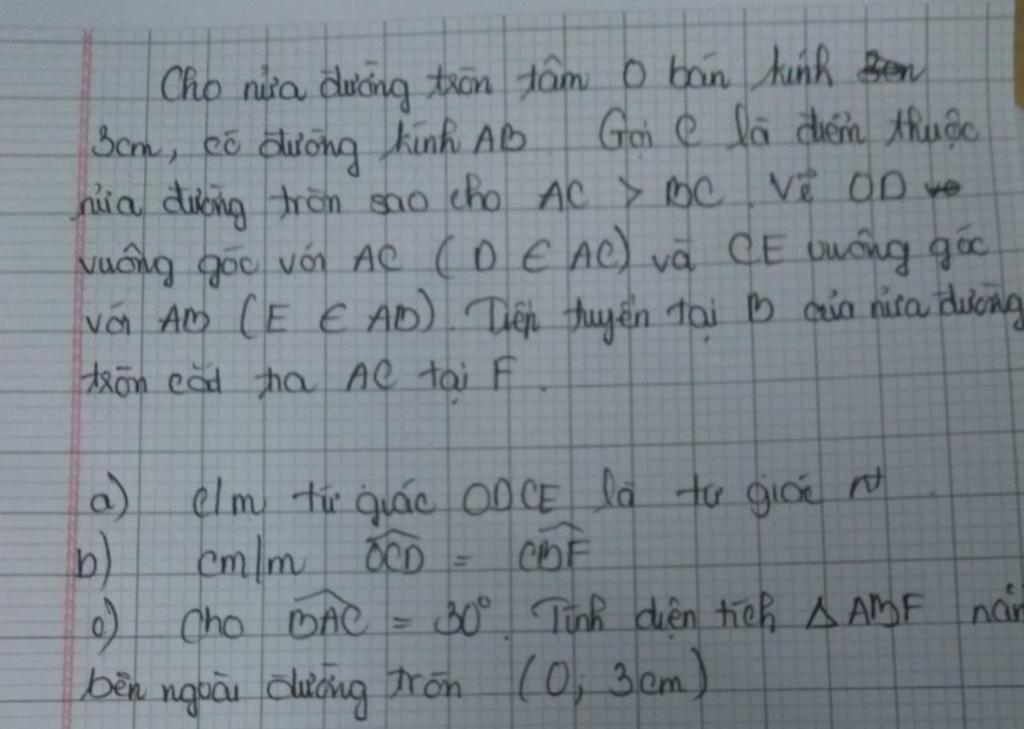 Cho nửa đường tròn tâm O bán kính
3cm, có đường kính AB Gọi C là điểm thuộc
nửa đường tròn sao cho AC > BC. Vẽ OD
vuông góc với AC (D ∈ AC) và CE vuông góc
với AB (E ∈ AB). Tiếp tuyến tại B của nửa đường
tròn cắt tia AC tại F.
a) c/m tứ giác ODCE là tứ giác nt
b) cm/m \widehat{OCD} = \widehat{CBF}
c) Cho \widehat{BAC} = 30°. Tính diện tích Δ ABF nằm
bên ngoài đường tròn (O; 3cm)